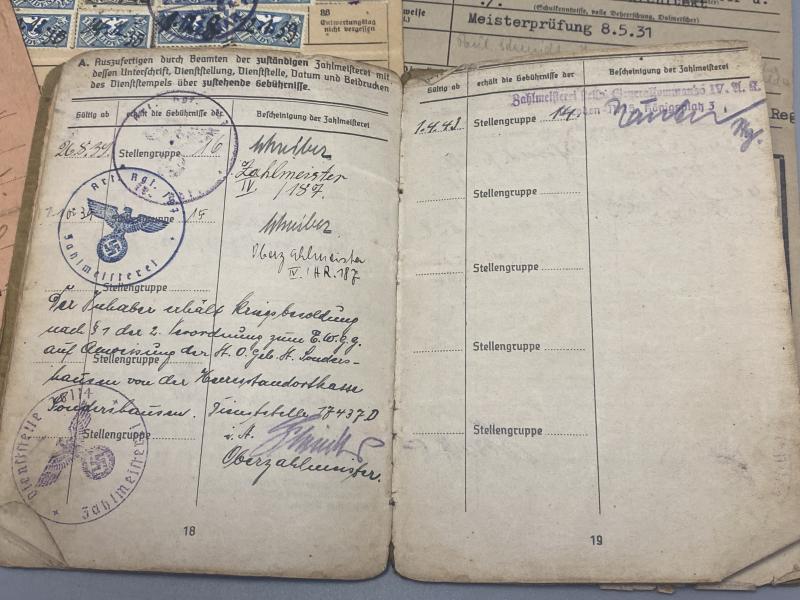 88
Entwertungstag
nicht vergessen
(Schulkenntnisse, volle Beherrschung, Dolmetscher)
Meisterprüfung 8.5.31
A. Auszufertigen durch Beamten der zuständigen Zahlmeisterei mit
dessen Unterschrift, Dienststellung, Dienststelle, Datum und Beidrucken
des Dienststempels über zustehende Gebührnisse.
Gültig ab
erhält die Gebührnisse der
Bescheinigung der Zahlmeisterei
26.8.39
Stellengruppe 16
Schreiber
Zahlmeister
IV /187.
Art. Rgt. 187
Zahlmeisterei
Stellengruppe 15
Schreiber
Oberzahlmeister
IV. /AR. 187
Stellengruppe
Der Inhaber erhält Kriegsbesoldung
nach § 1 der 2. Verordnung zum E.W.G.G.
auf Anweisung der H. O. Geb. St. Sonders-
Stellengruppe
hausen von der Heeresstandortkasse
Sondershausen. Dienststelle 17437 D
Stellengruppe
i. A.
Oberzahlmeister.
Dienststelle
Zahlmeisterei
18
Gültig ab
erhält die Gebührnisse der
Bescheinigung der Zahlmeisterei
Zahlmeisterei Stellv. Generalkommando IV. A. K.
Königsplatz 3
1.4.43
Stellengruppe 14
Stellengruppe
Stellengruppe
Stellengruppe
Stellengruppe
19